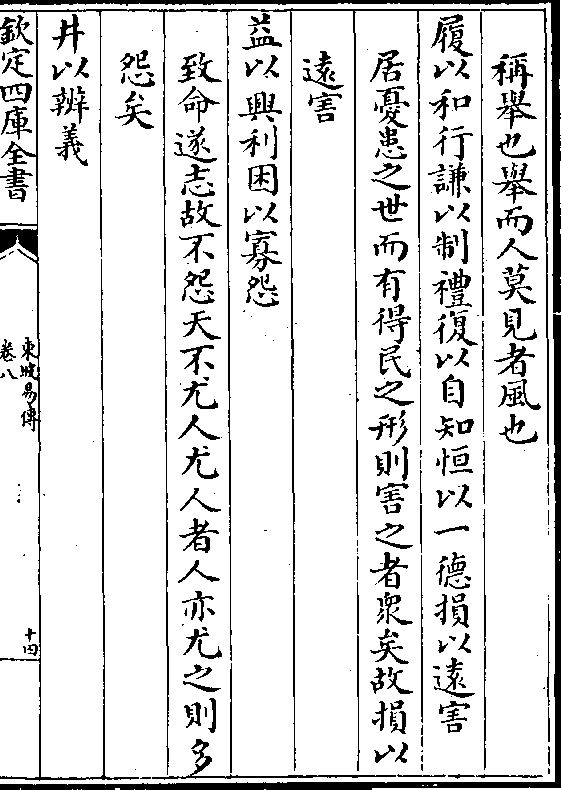 稱舉也舉而人莫見者風也
履以和行謙以制禮復以自知恒以一德損以遠害
居憂患之世而有得民之形則害之者衆矣故損以
遠害
益以興利困以寡怨
致命遂志故不怨天不尤人尤人者人亦尤之則多
怨矣
井以辨義
欽定四庫全書
東坡易傳
卷八
十四